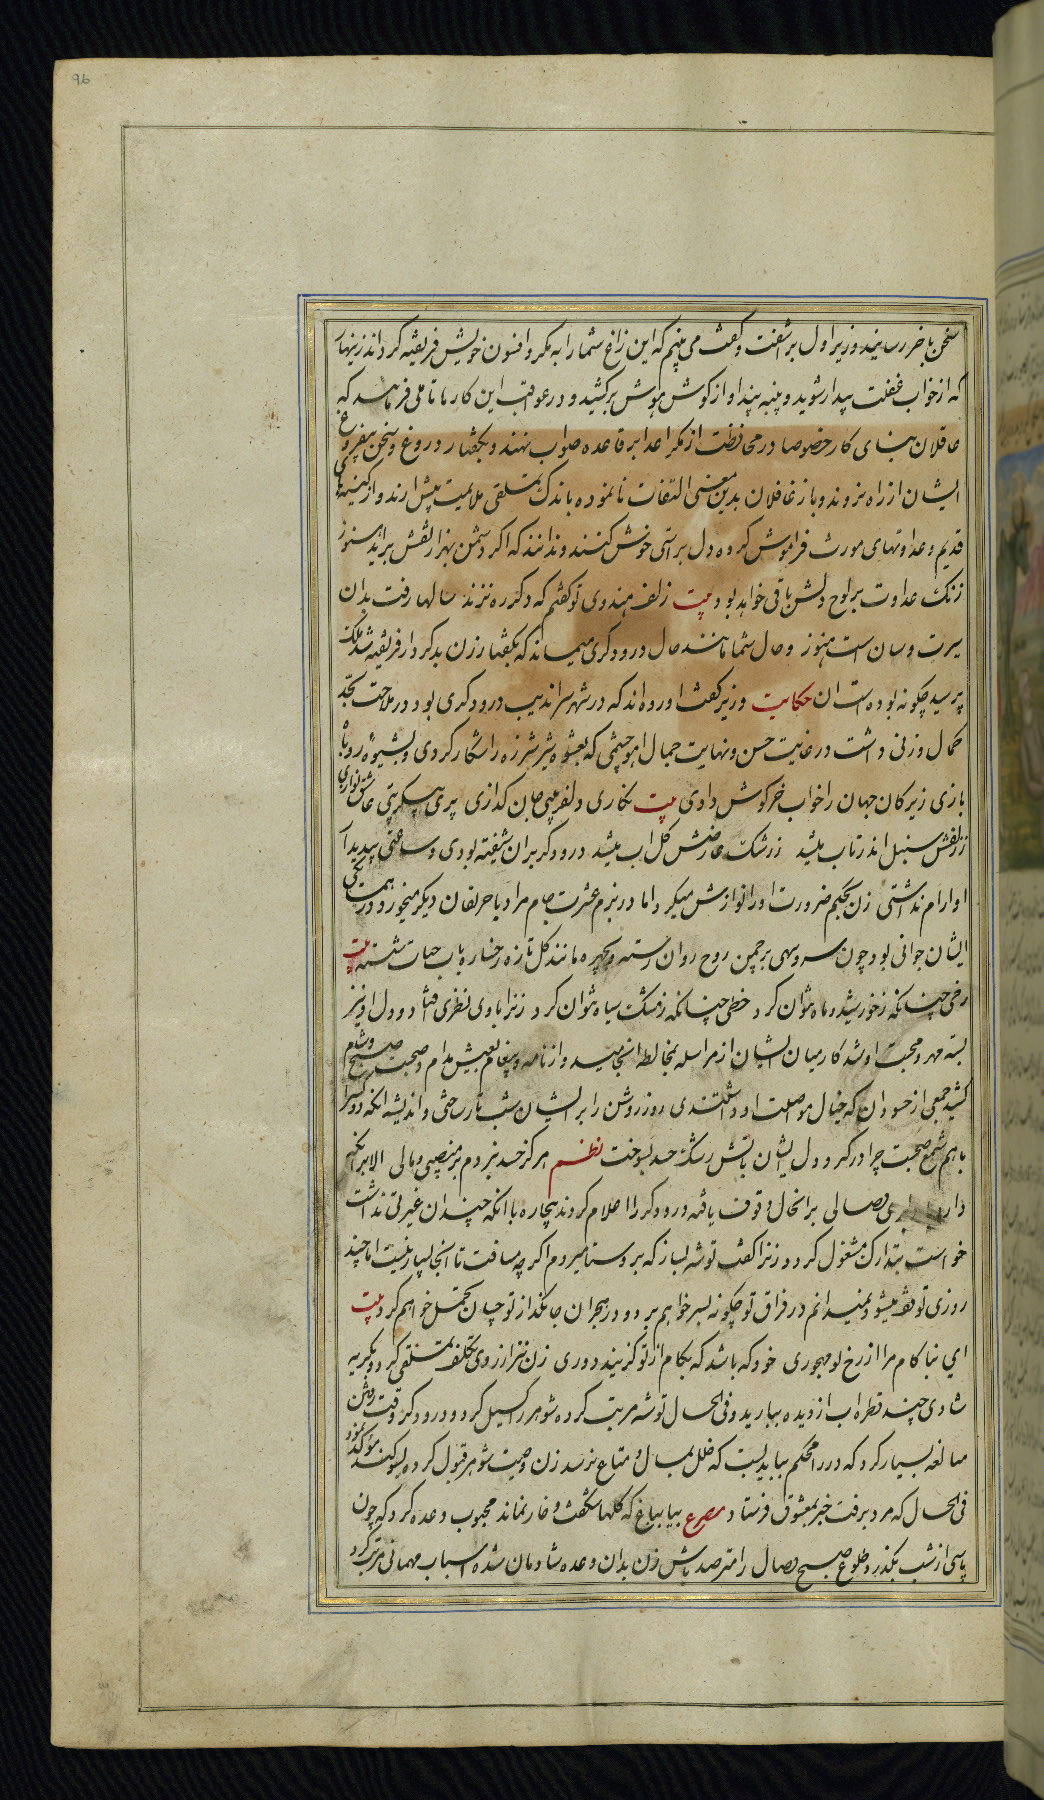 96
سخن باخر رسانید وزیر اول براشفت و کفت می بینم که این زاغ شما را به مکر و افسون خویش فریفته کرداند زینهار
که از خواب غفلت بیدار شوید و پنبه پندار از کوش هوش برکشید و در عواقب این کار تاملی فرمایید که
عاقلان بنای کار خصوصا در محافظت از مکر اعدا بر قاعده صواب نهند و بکفتار دروغ و سخن بیفروغ
ایشان از راه نروند و باز غافلان بدین معنی التفات نانموده باندک تملقی ملایمت پیش ارند و از کینه های
قدیم و عداوتهای موروث فراموش کرده دل براشتی خوش کنند و ندانند که اکر دشمن بهزار نقش براید هنوز
زنک عداوت بر لوح دلش باقی خواهد بود بیت زلف هندوی تو کفتم که دکر ره نزند سالها رفت بدان
سیرت و سان است هنوز و حال شما مانند حال درودکری میماند که بکفتار زن بدکردار فریفته شد ملک
پرسید چکونه بوده است ان حکایت وزیر کفت اورده اند که در شهر سراندیب درودکری بود در ملاحت بحد
کمال و زنی داشت در غایت حسن و نهایت جمال اهو چشمی که بعشوه شیر شرزه را شکار کردی و بشیوه روباه
بازی زیرکان جهان را خواب خرکوش دادی بیت نکاری دلفریبی جان کدازی پری پیکر بتی عاشق نوازی
ز زلفش سنبل اندر تاب میشد ز رشک عارضش کل اب میشد درودکر بران شیفته بودی و ساعتی بیدیدار
او ارام نداشتی زن بحکم ضرورت او را نوازش میکرد اما در بزم عشرت جام مراد با حریفان دیکر میخورد و در همسایکی
ایشان جوانی بود چون سرو سهی بر چمن روح روان رسته و بچهره مانند کل تازه رخساره باب حیات شسته بیت
رخی چنانکه ز خورشید و ماه نتوان کرد خطی چنانکه ز مشک سیاه نتوان کرد زنرا با وی نظری افتاد و دل او نیز
بسته مهر و محبت او شد کار میان ایشان از مراسله بمخالطه انجامید و از نامه و پیغام بعیش مدام و صحبت صبح و شام
کشید جمعی از حسودان که خیال مواصلت او داشتندی روز روشن را بر ایشان شب تار ساختی و اندیشه انکه دو کس را
باهم شمع صحبت چرا در کیرد دل ایشان باتش رشک و حسد بسوخت نظم هرکز حسد نبردم بر منصبی و مالی الا بر انکه
دارد با دلبری وصالی بر انحال وقوف یافته درودکر را اعلام کردند بیچاره با انکه چندان غیرتی نداشت
خواست بتدارک مشغول کردد زنرا کفت توشه بساز که بروستا میروم اکرچه مسافت تا انجا بسیار نیست اما چند
روزی توقف میشود نمیدانم در فراق تو چکونه بسر خواهم برد و در هجران جانکداز تو چسان تحمل خواهم کرد بیت
ای نباکام مرا از رخ تو مهجوری خود که باشد که بکام از تو کزیند دوری زن نیز از روی تکلف تملقی کرد و بکریه
شادی چند قطره اب از دیده ببارید و فی الحال توشه مرتب کرده شوهر را کسیل کرد و درودکر وقت رفتن
مبالغه بسیار کرد که در را محکم بباید بست که خلل بمال و متاع نرسد زن وصیت شوهر قبول کرده بسوکند موکد نمود
فی الحال که مرد برفت خبر بمعشوق فرستاد مصرع بیا بباغ که کلها شکفت و خار نماند محبوب وعده کرد که چون
پاسی از شب بکذرد طلوع صبح وصال را مترصد باش زن بدان وعده شادمان شده اسباب مهمانی مرتب کرد